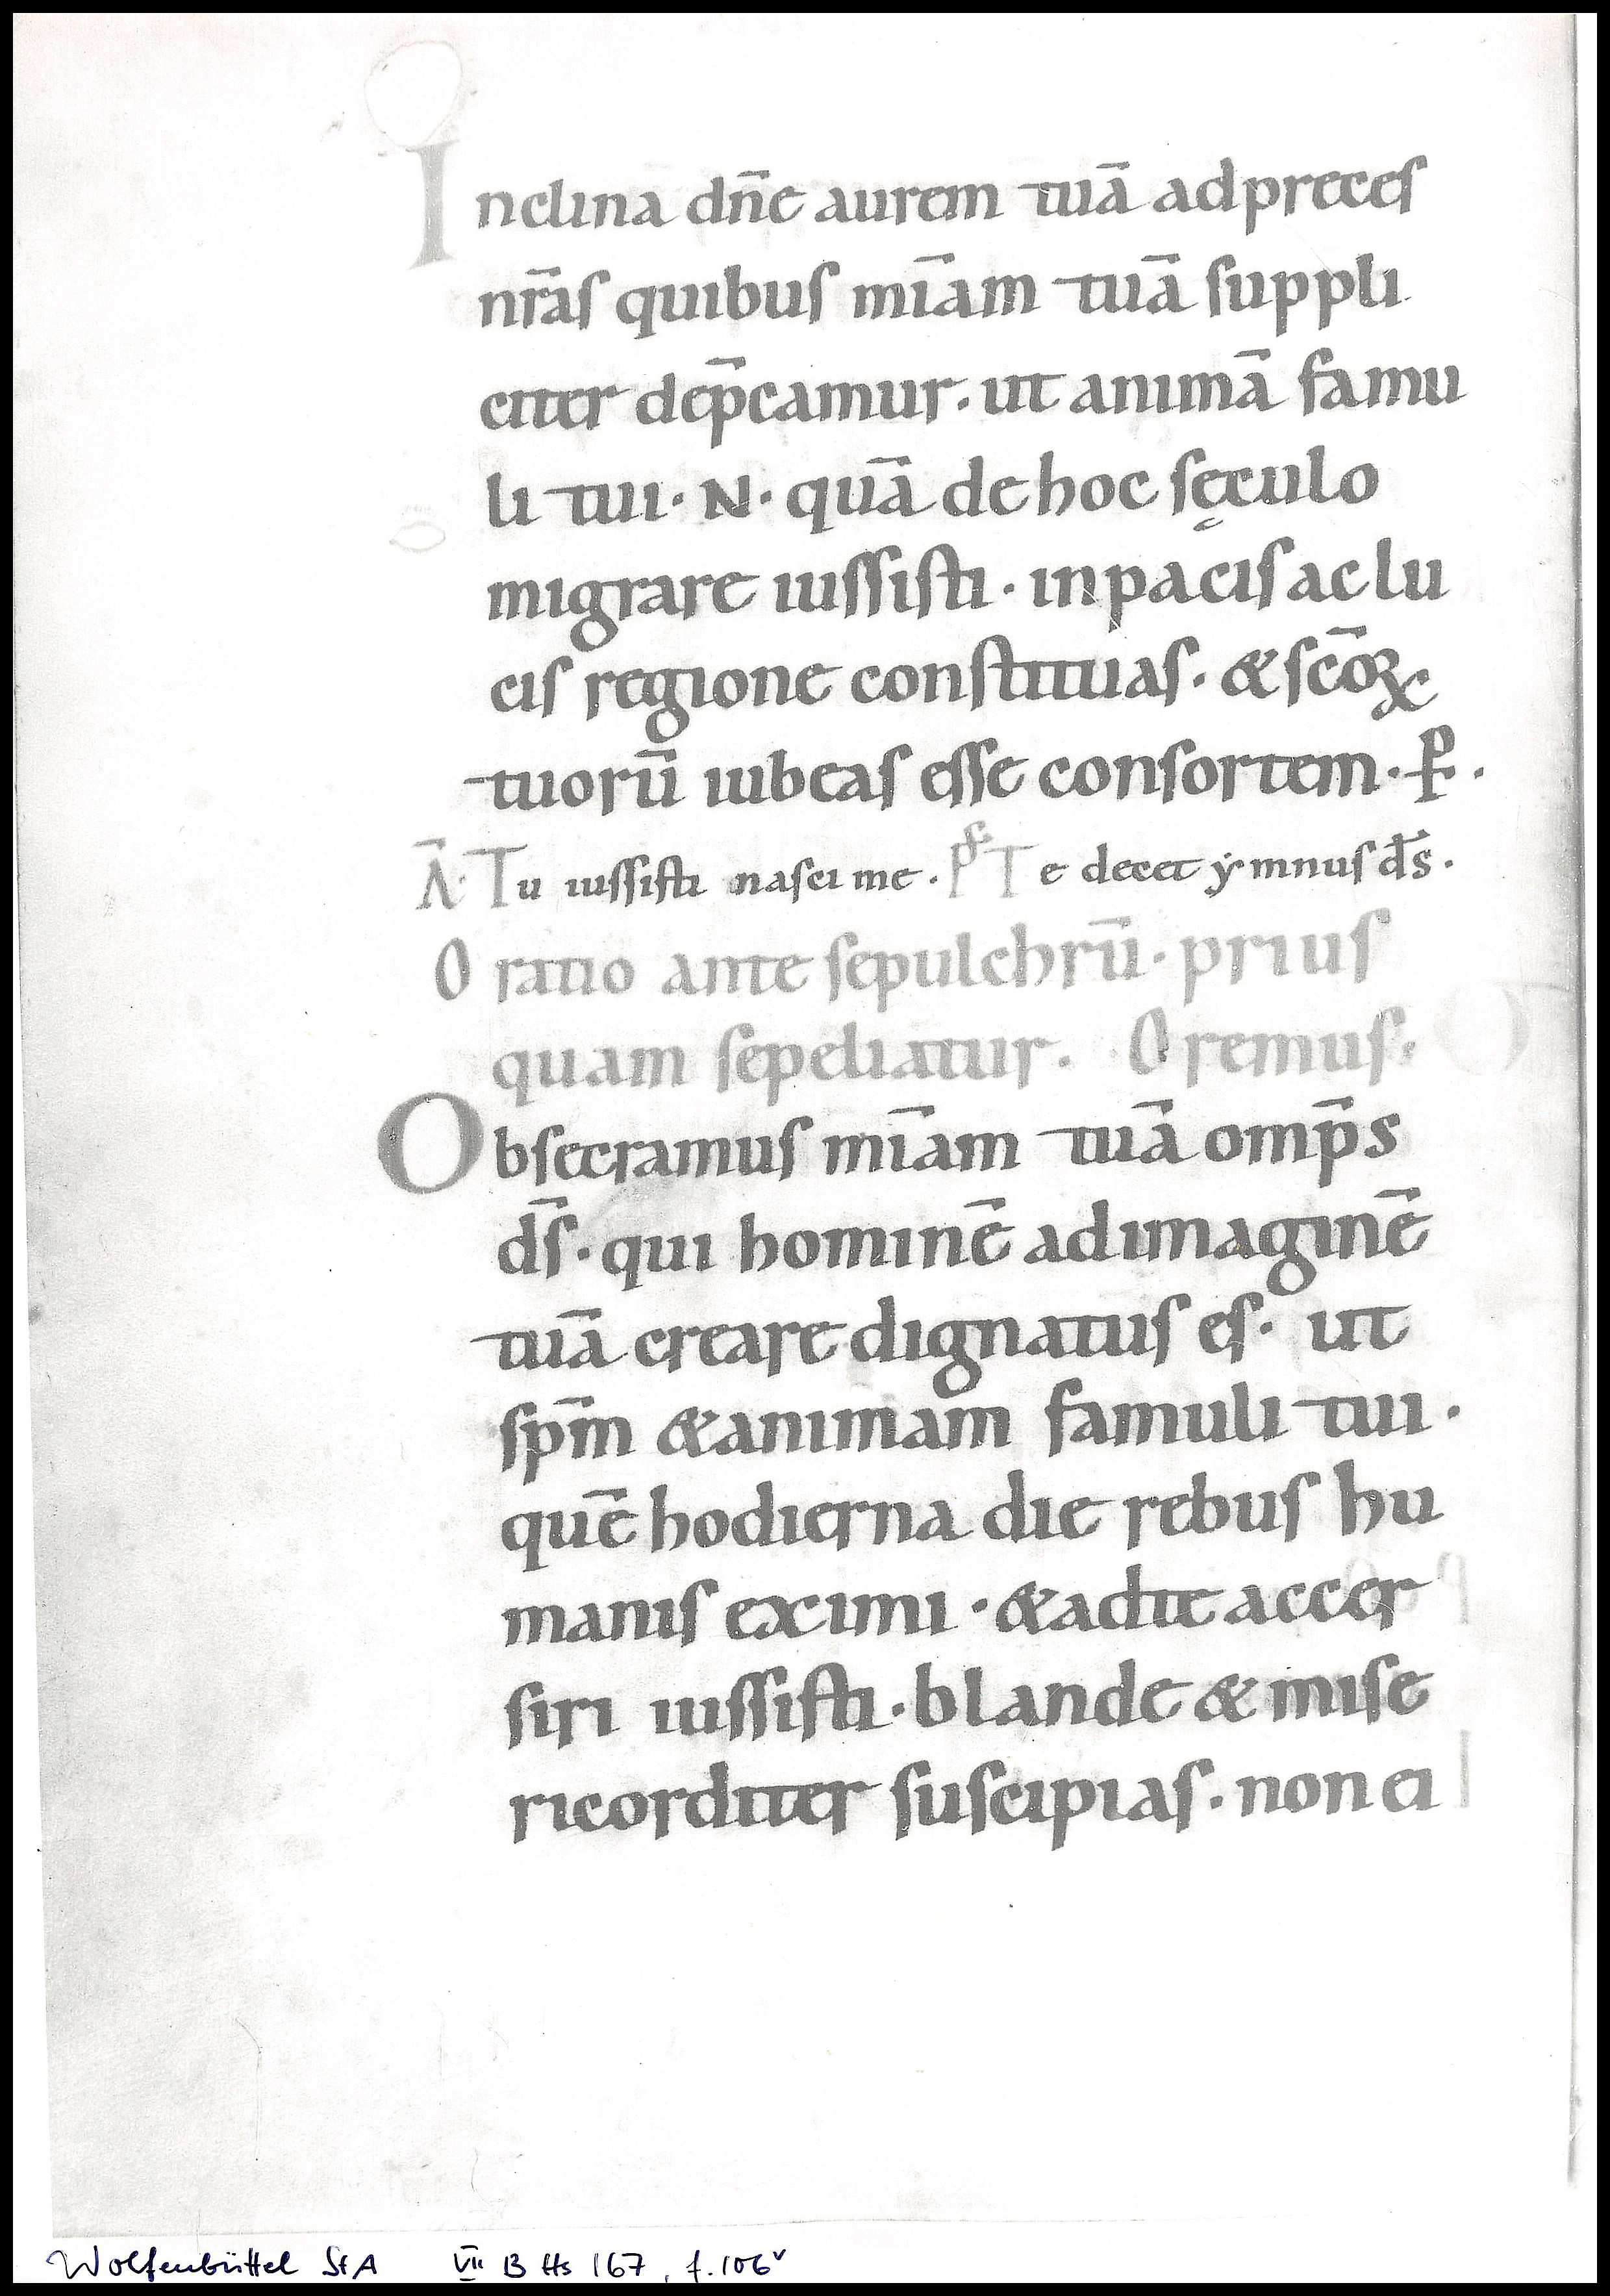 Inclina dn̄e aurem tuā ad preces
nr̄as quibus mīam tuā suppli
citer dep̄camur. ut animā famu
li tui· N· quā de hoc sęculo
migrare iussisti· in pacis ac lu
cis regione constituas· & sc̄oꝝ
tuorū iubeas esse consortem· P̲.
Ā· Tu iussisti nasci me. Ps Te decet ẏmnus d̄s.
Oratio ante sepulchrū· prius
quam sepeliatur. Oremus.
Obsecramus mīam tuā omp̄s
d̄s· qui hominē ad imaginē
tuā creare dignatus es· ut
sp̄m & animam famuli tui·
quē hodierna die rebus hu
manis eximi· & ad te accer
siri iussisti· blande & mise
ricorditer suscipias· non ei
Wolfenbüttel StA VII B Hs 167, f. 106v